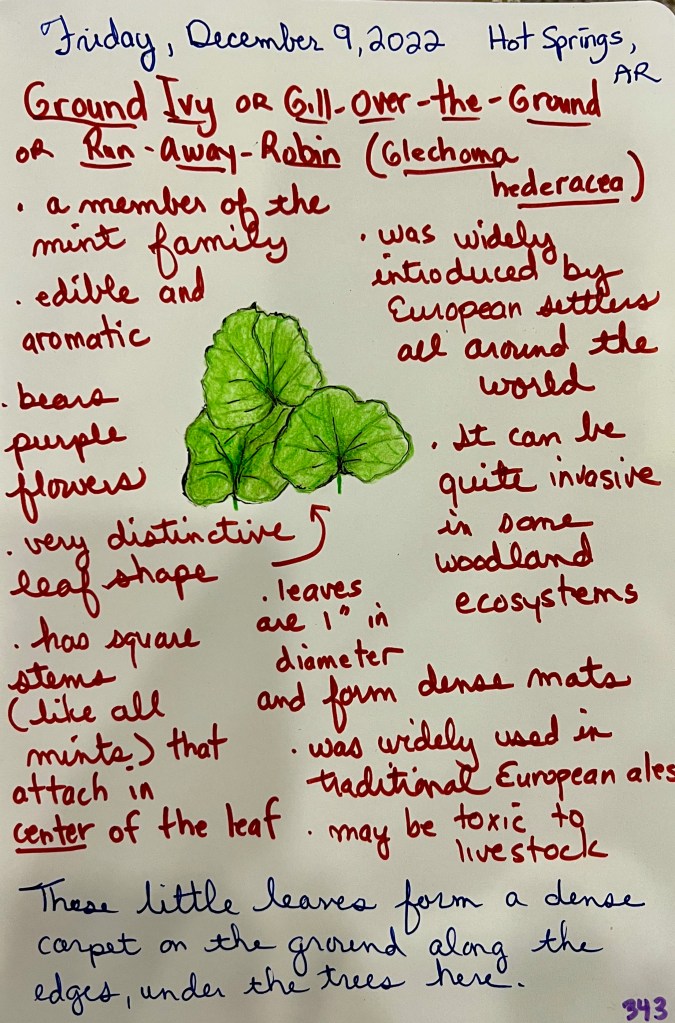 Friday, December 9, 2022 Hot Springs,
AR
Ground Ivy OR Gill-Over-the-Ground
OR Run-Away-Robin (Glechoma
hederacea)
· a member of the
mint family
· edible and
aromatic
· bears
purple
flowers
· very distinctive
leaf shape
· has square
stems
(like all
mints) that
attach in
center of the leaf
· was widely
introduced by
European settlers
all around the
world
· It can be
quite invasive
in some
woodland
ecosystems
· leaves
are 1" in
diameter
and form dense mats
· was widely used in
traditional European ales
· may be toxic to
livestock
These little leaves form a dense
carpet on the ground along the
edges, under the trees here.
343